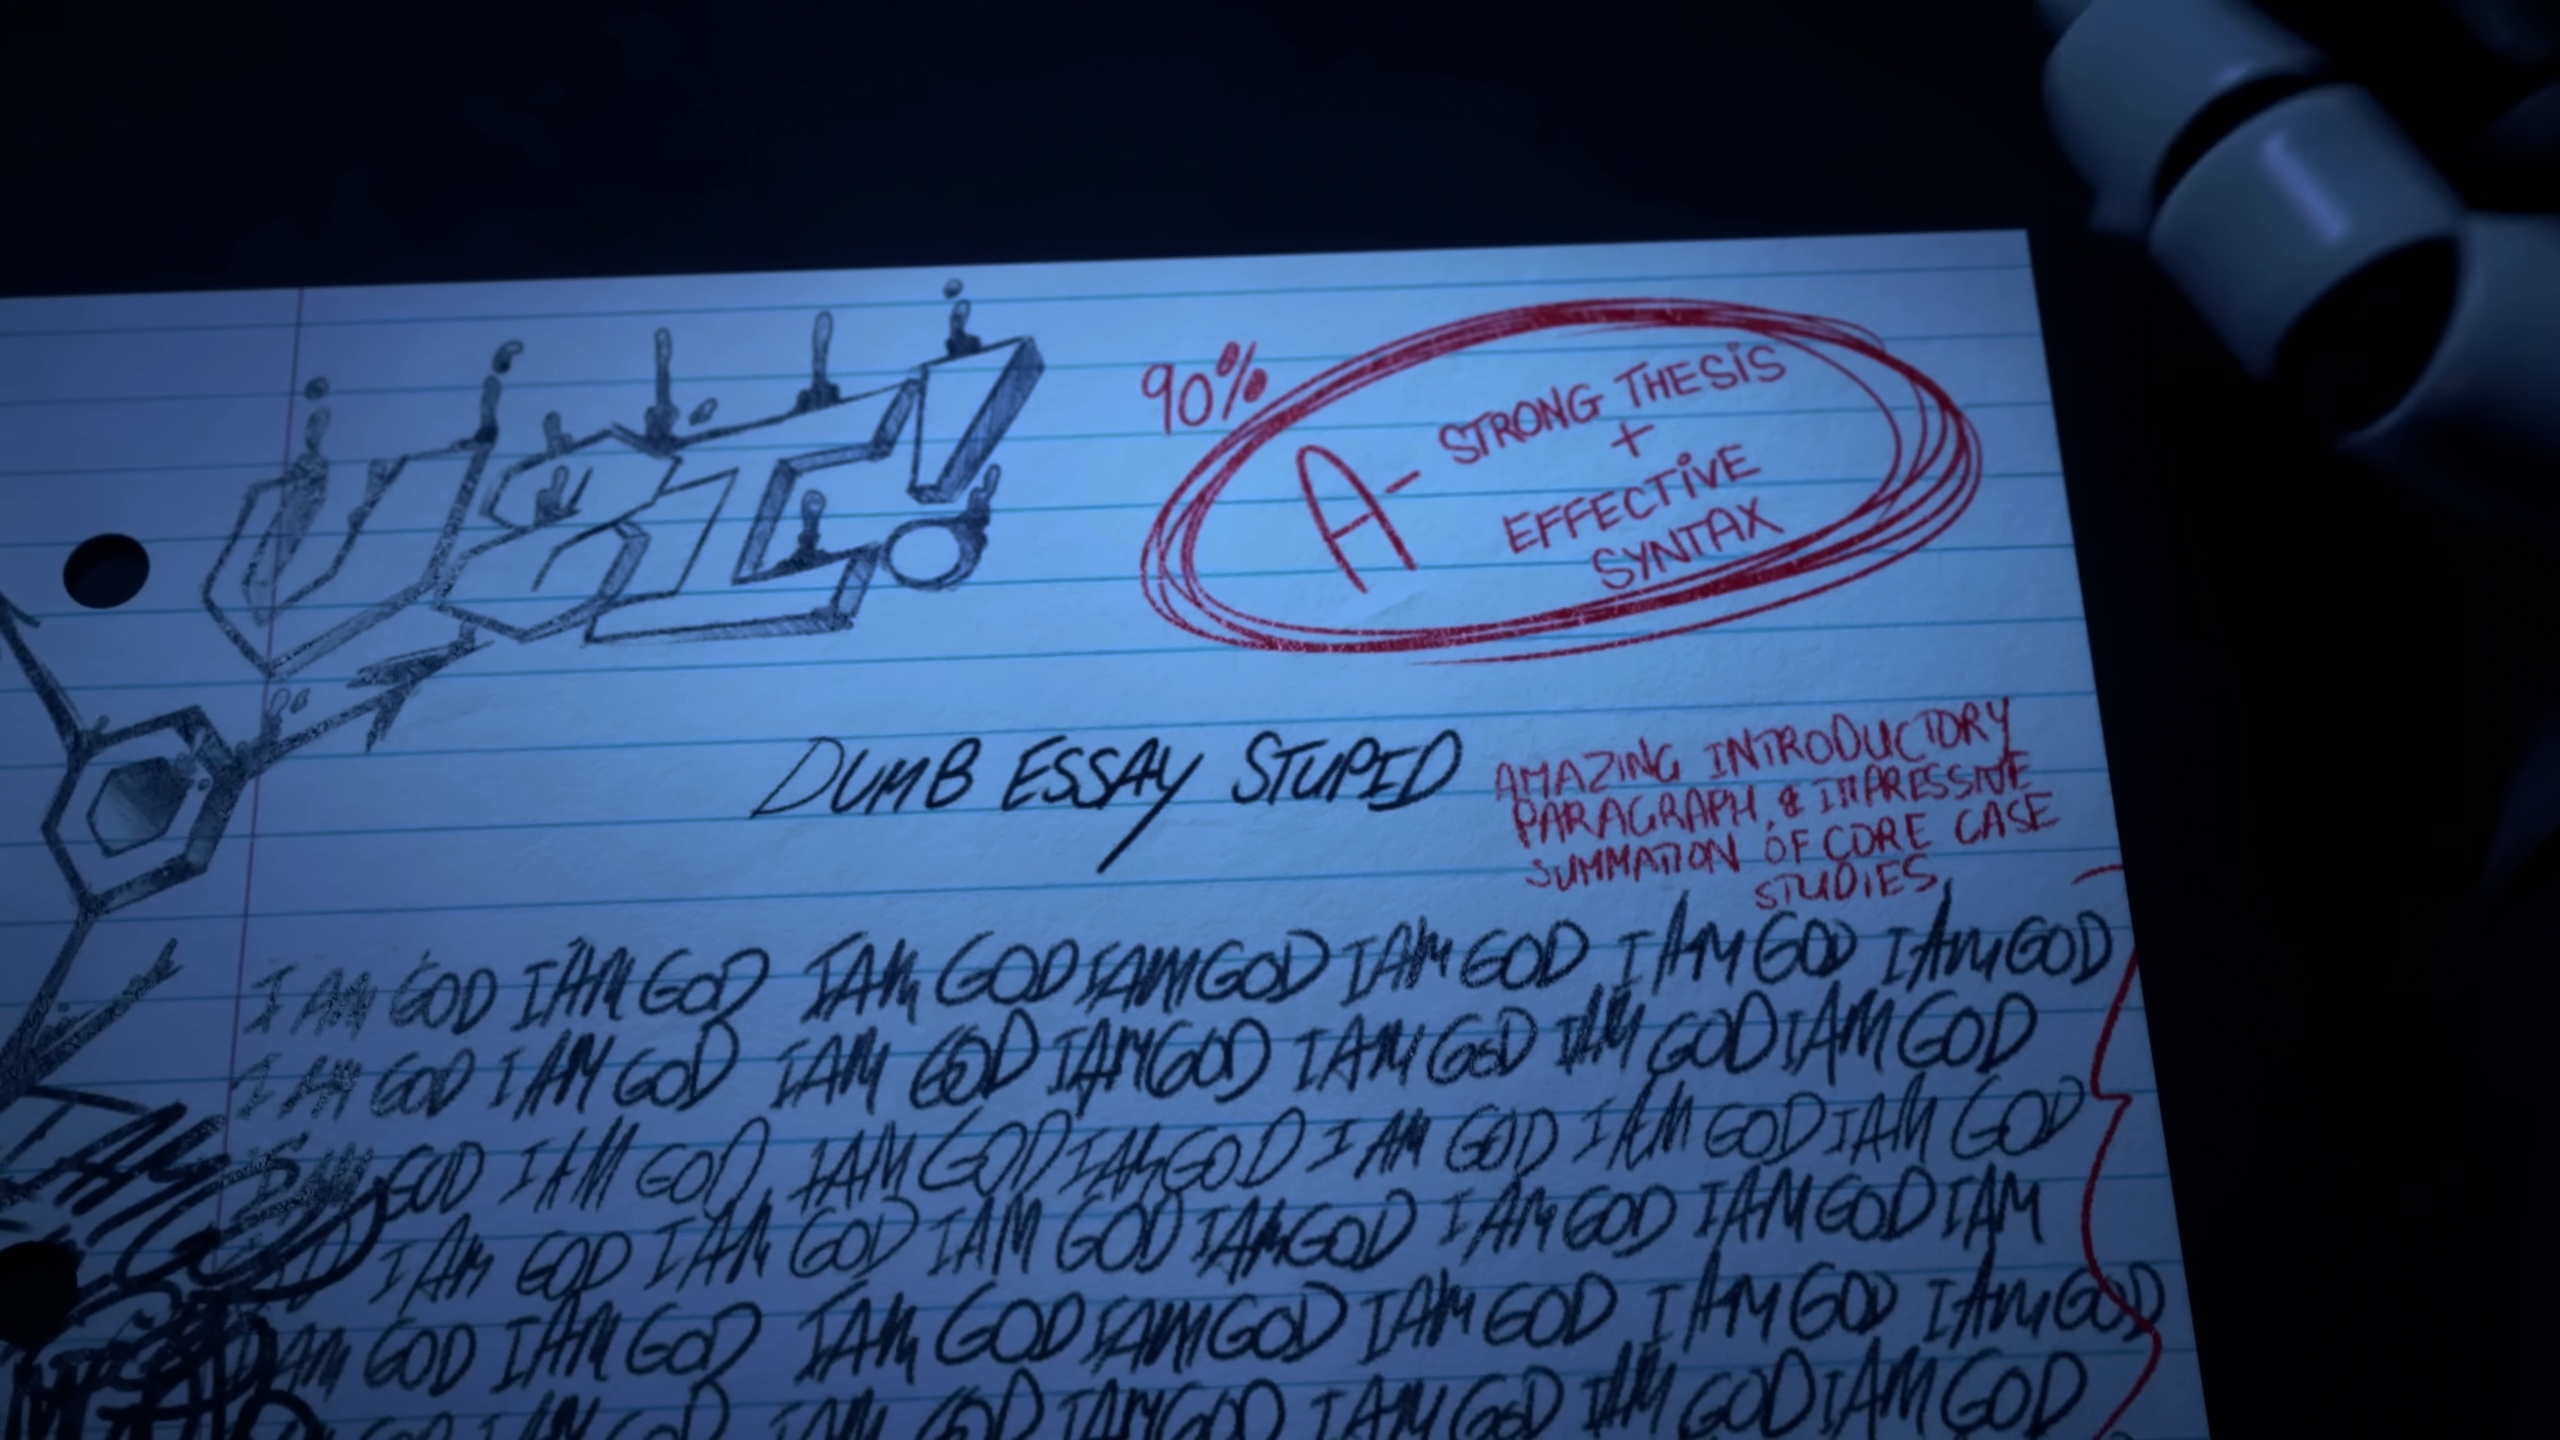 UZI!
90%
A- STRONG THESIS
+
EFFECTIVE
SYNTAX
DUMB ESSAY STUPID
AMAZING INTRODUCTORY
PARAGRAPH, & IMPRESSIVE
SUMMATION OF CORE CASE
STUDIES
I AM GOD I AM GOD I AM GOD I AM GOD I AM GOD I AM GOD I AM GOD
I AM GOD I AM GOD I AM GOD I AM GOD I AM GOD I AM GOD I AM GOD
I AM GOD I AM GOD I AM GOD I AM GOD I AM GOD I AM GOD I AM GOD
I AM GOD I AM GOD I AM GOD I AM GOD I AM GOD I AM GOD I AM
I AM GOD I AM GOD I AM GOD I AM GOD I AM GOD I AM GOD I AM GOD
I AM GOD I AM GOD I AM GOD I AM GOD I AM GOD I AM GOD
I AM GOD